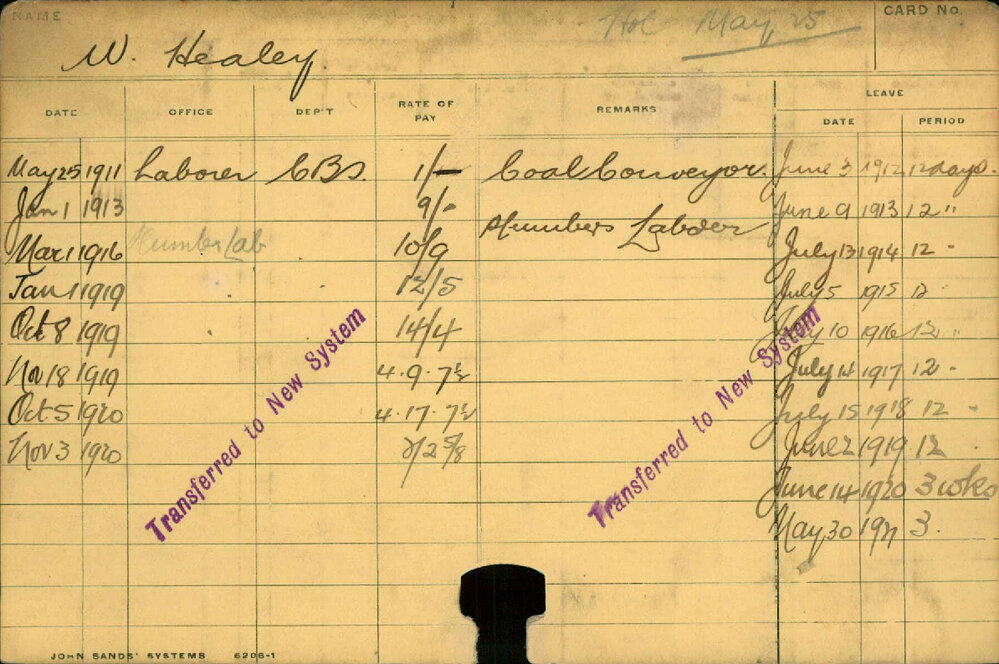 NAME
Hol May 25
CARD No.
W. Healey
DATE OFFICE DEP'T RATE OF PAY REMARKS LEAVE DATE PERIOD
May 25 1911 Laborer CBS. 1/- Coal Conveyor. June 3 1912 12 days.
Jan 1 1913 9/- June 9 1913 12 "
Plumbers Laborer
Mar 1 1916 Plumbs Lab 10/9 July 13 1914 12 "
Jan 1 1919 12/5 July 5 1915 12 "
Oct 8 1919 14/4 July 10 1916 12 "
Nov 18 1919 4.9.7½ July 14 1917 12 "
Oct 5 1920 4.17.7½ July 15 1918 12 "
Nov 3 1920 2/2 5/8 June 2 1919 12
June 14 1920 3 wks
May 30 1921 3.
Transferred to New System
Transferred to New System
JOHN SANDS' SYSTEMS 6206-1